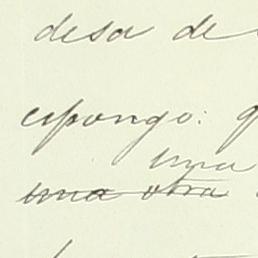 desa de
espongo:
una
una otra